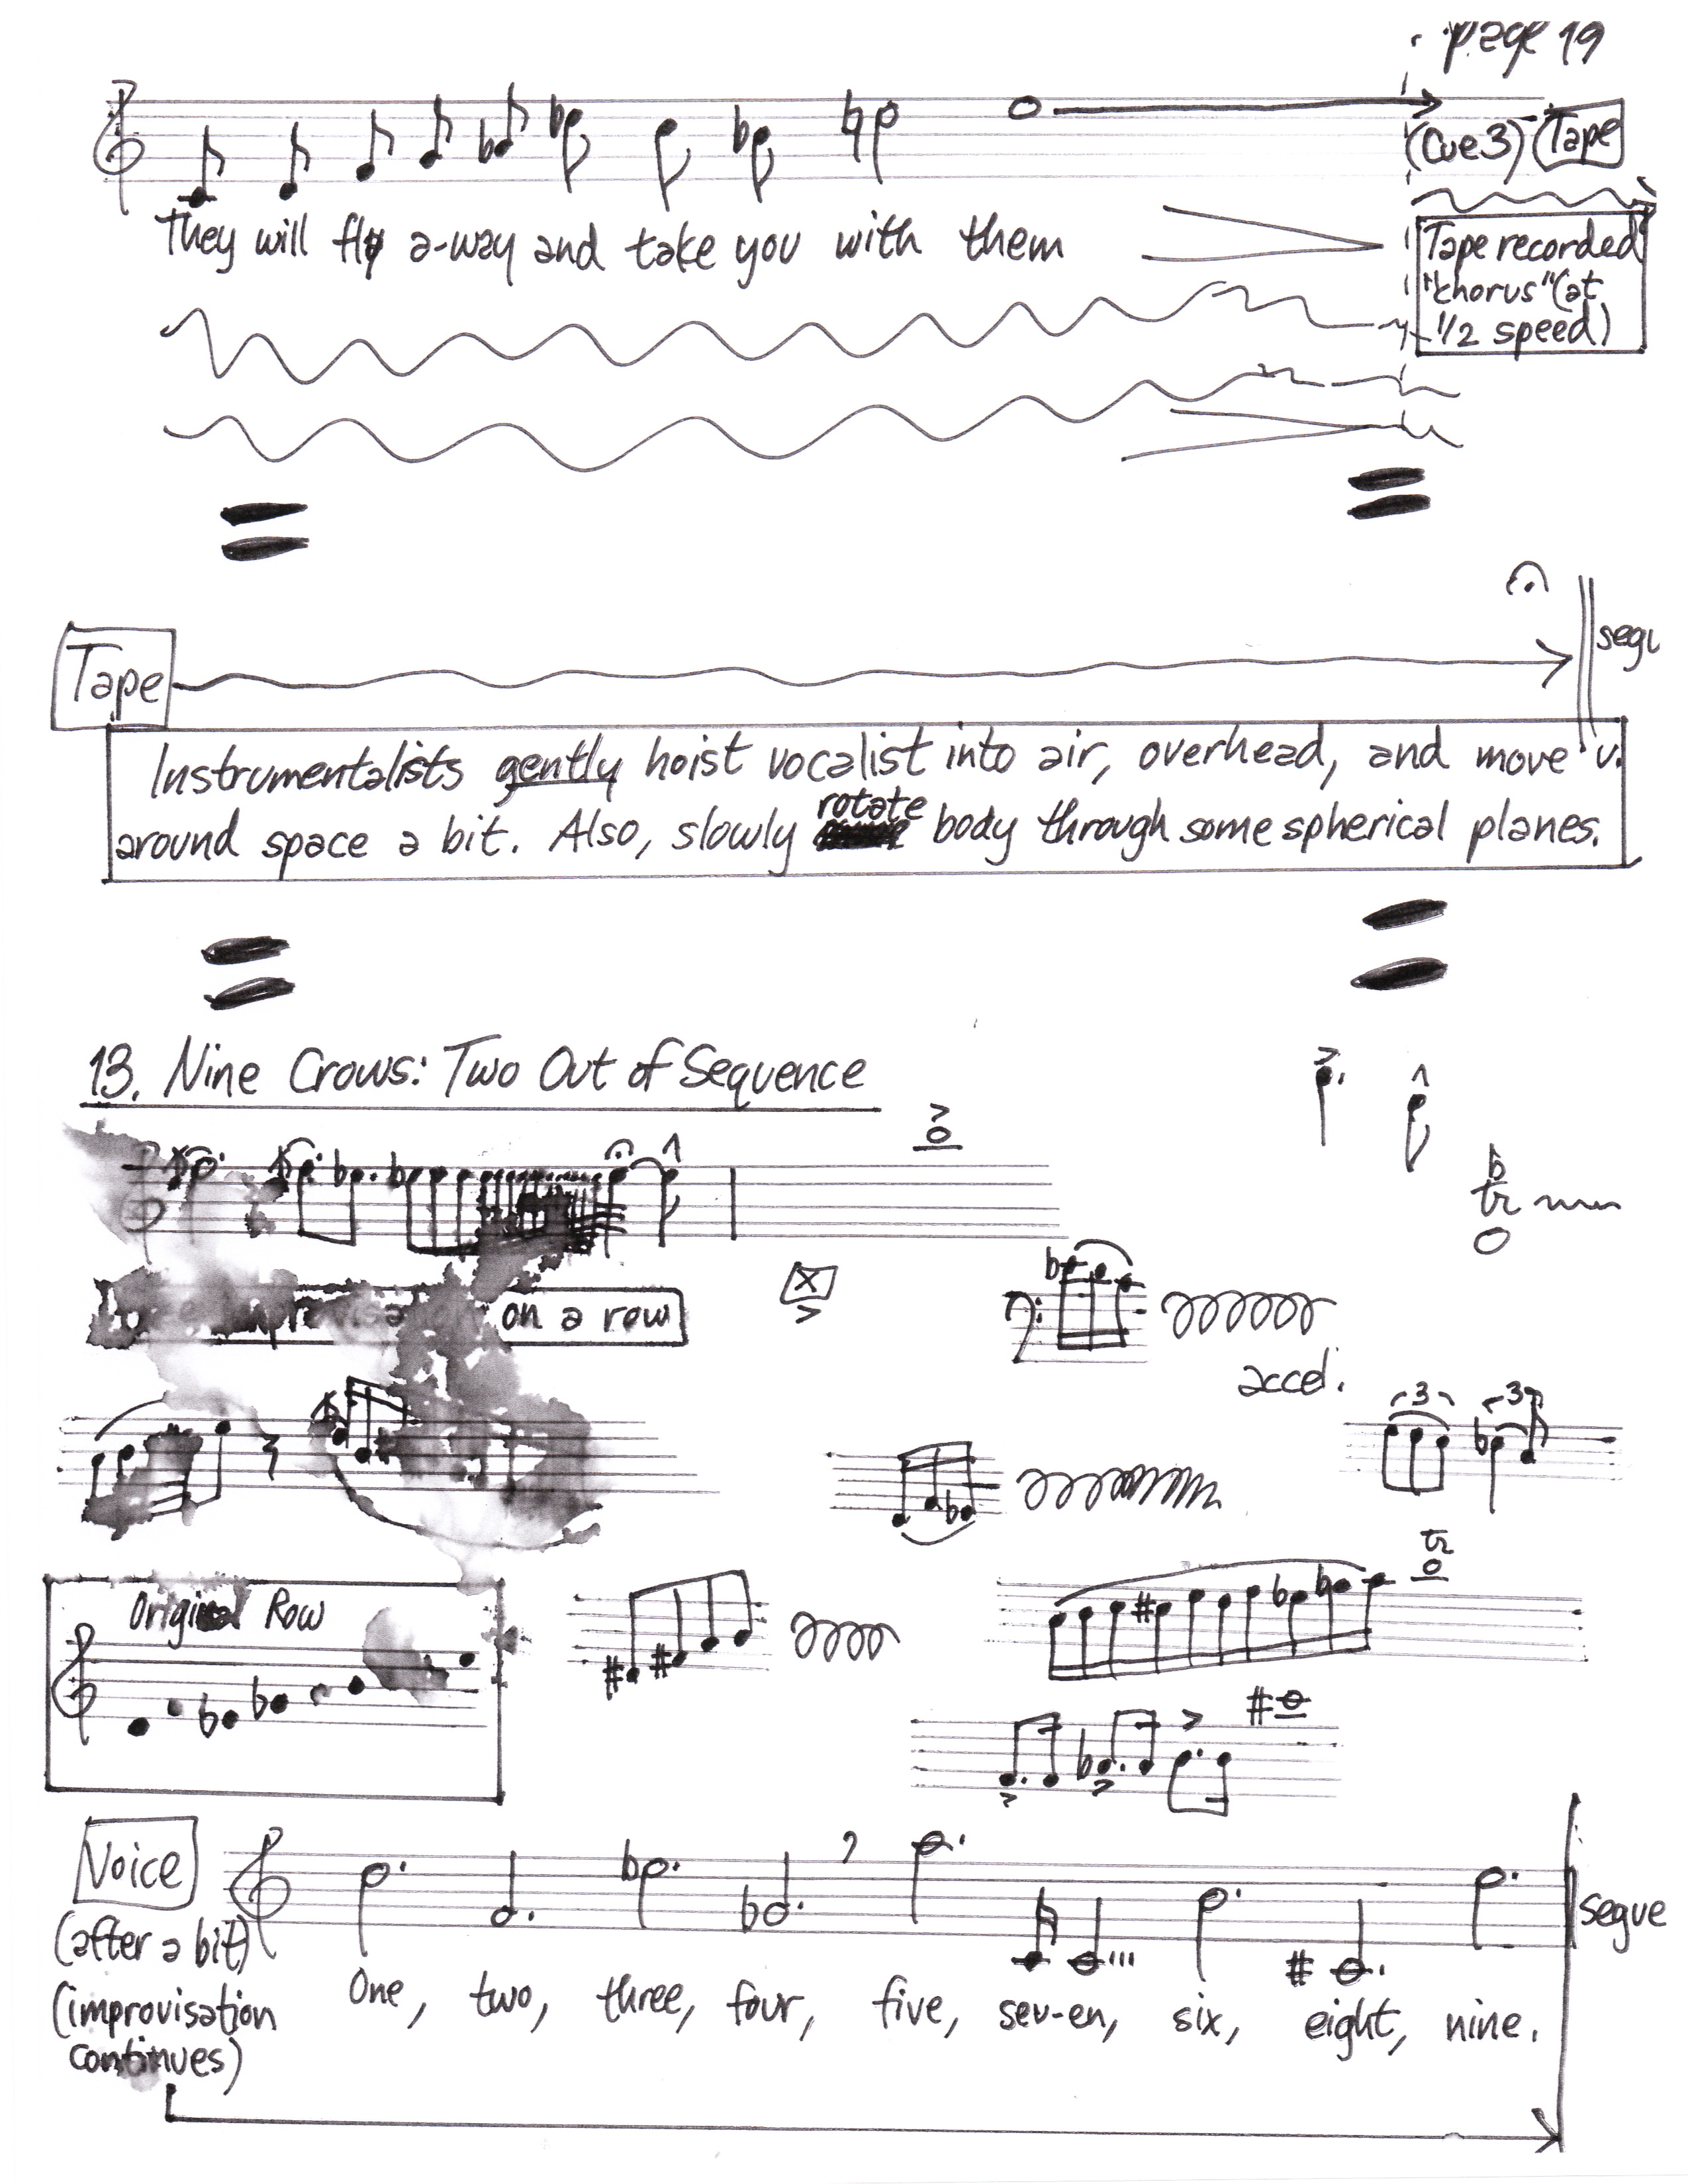 page 19
(Cue 3) (Tape
They will fly a-way and take you with them
Tape recorded
"chorus" (at
1/2 speed)
segu
Tape
Instrumentalists gently hoist vocalist into air, overhead, and move v.
around space a bit. Also, slowly rotate body through some spherical planes.
13. Nine Crows: Two Out of Sequence
tr
on a row
accel.
3 3
tr
Original Row
Voice
segue
(after a bit)
(improvisation
continues)
One, two, three, four, five, sev-en, six, eight, nine.